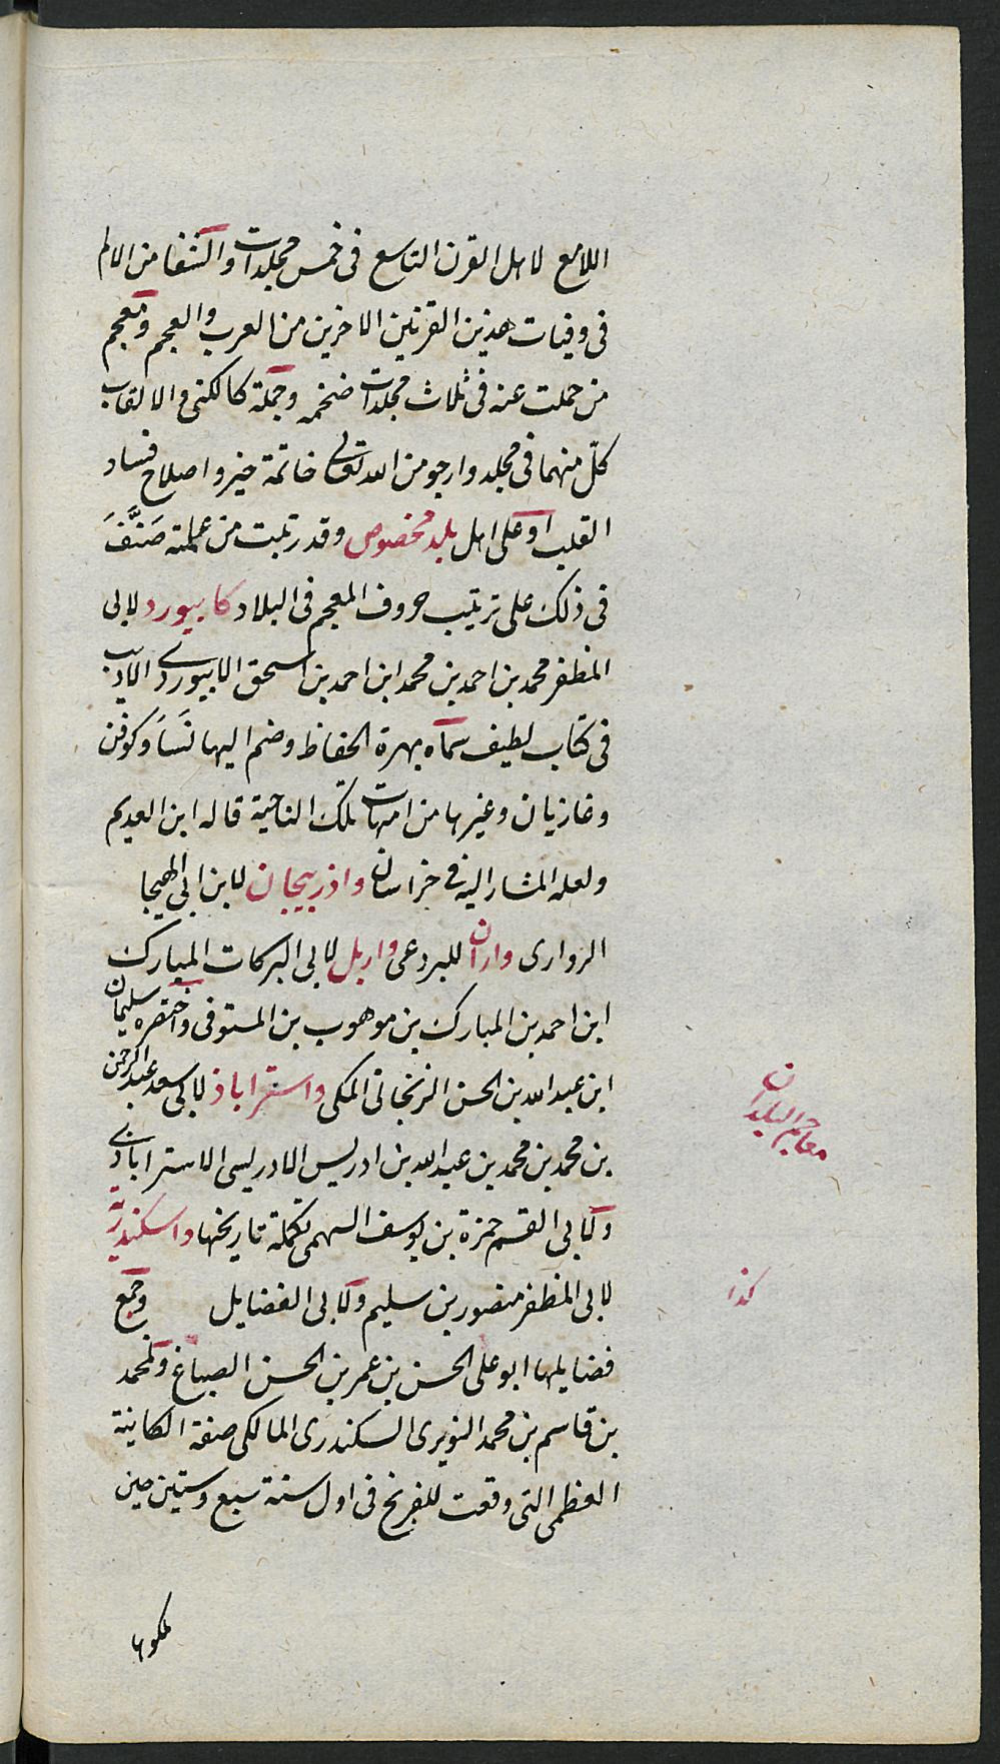 اللامع لاهل القرن التاسع فى خمس مجلدات والشفا من الالم
فى وفيات هذين القرنين الاخرين من العرب والعجم ومعجم
من حملت عنه فى ثلاث مجلدات ضخمه وجملة كالكنى والالقاب
كلّ منهما فى مجلد وارجو من الله تعالى خاتمة خير واصلاح فساد
القلب او على اهل بلد مخصوص وقد رتبت من علمته صَنَّفَ
فى ذلك على ترتيب حروف المعجم فى البلاد كابيورد لابى
المظفر محمد بن احمد بن محمد ابن احمد بن اسحق الابيوردى الاديب
فى كتاب لطيف سماه بهرة الحفاظ وضم اليها نَسَاَ وكوفن
وغازيان وغيرها من امهات تلك الناحية قاله ابن العديم
ولعله المشار اليه فى خراسان واذربيجان لابن ابى الهيجا
الروارى واران للبردعى واربل لابى البركات المبارك
ابن احمد بن المبارك بن موهوب بن المستوفى واختصره سليمان
ابن عبد الله بن الحسن الزنجانى المكى واستراباذ لابى سعد عبد الرحمن
بن محمد بن محمد بن عبد الله بن ادريس الادريسى الاستراباذى
ولابى القسم حمزة بن يوسف السهمى تكملة تاريخها واسكندرية
لابى المظفر منصور بن سليم ولابى الفضايل وجمع
فضايلها ابو على الحسن بن عمر بن الحسن الصباغ ولمحمد
بن قاسم بن محمد النويرى السكندرى المالكى صفة الكاينة
العظمى التى وقعت للفرنج فى اول سنة سبع وستين حين
ملكوها
معاجم البلدان
كذا